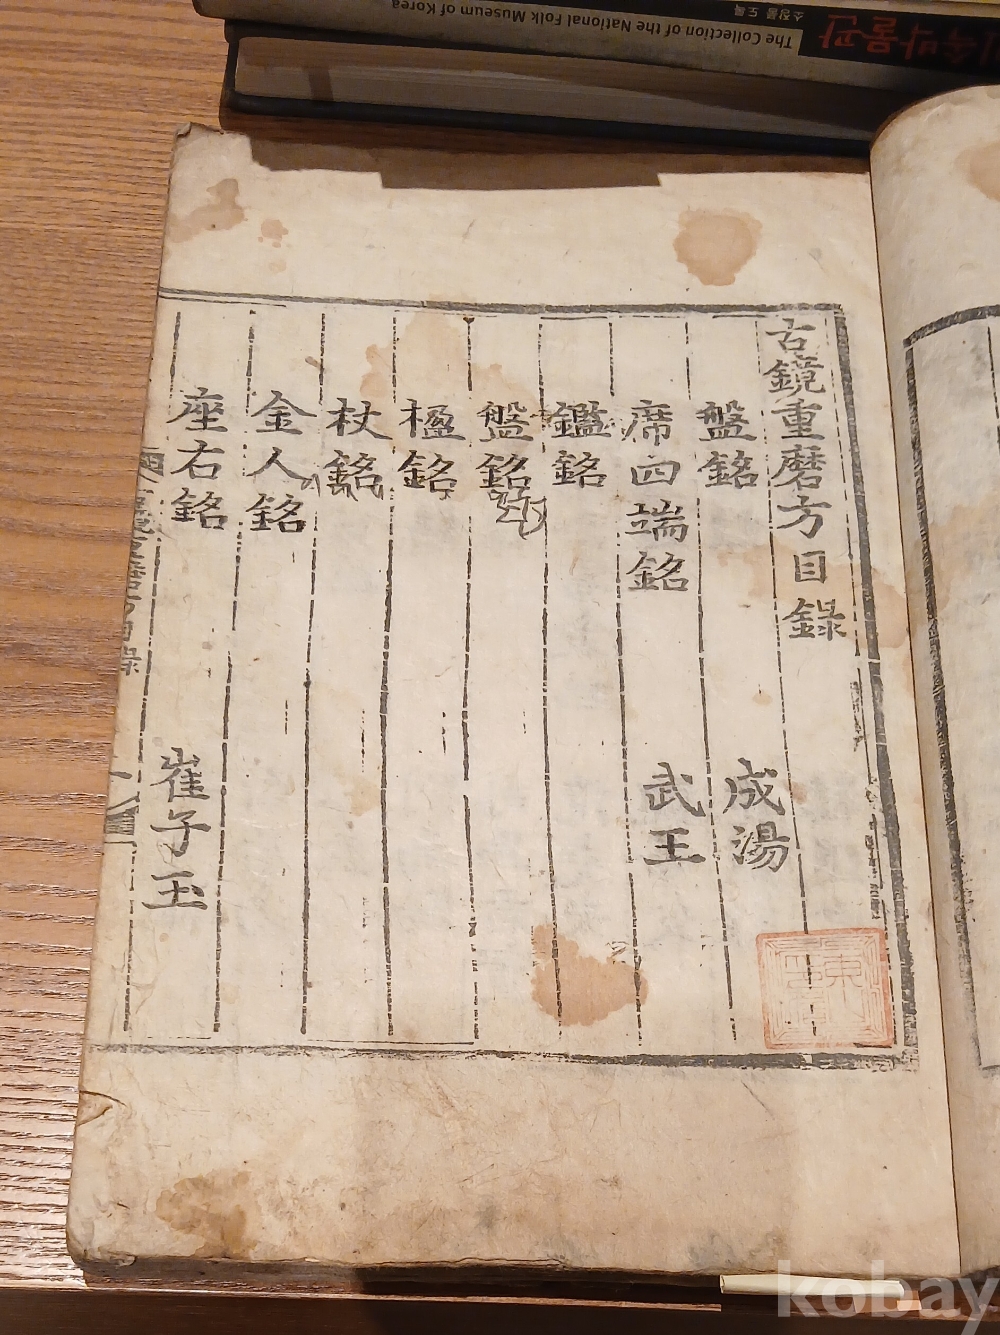 The Collection of the National Folk Museum of Korea
소장품 도록
속박물관
古鏡重磨方目錄
盤銘 成湯
席四端銘 武王
鑑銘
盤銘
楹銘
杖銘
金人銘
座右銘 崔子玉
kobay